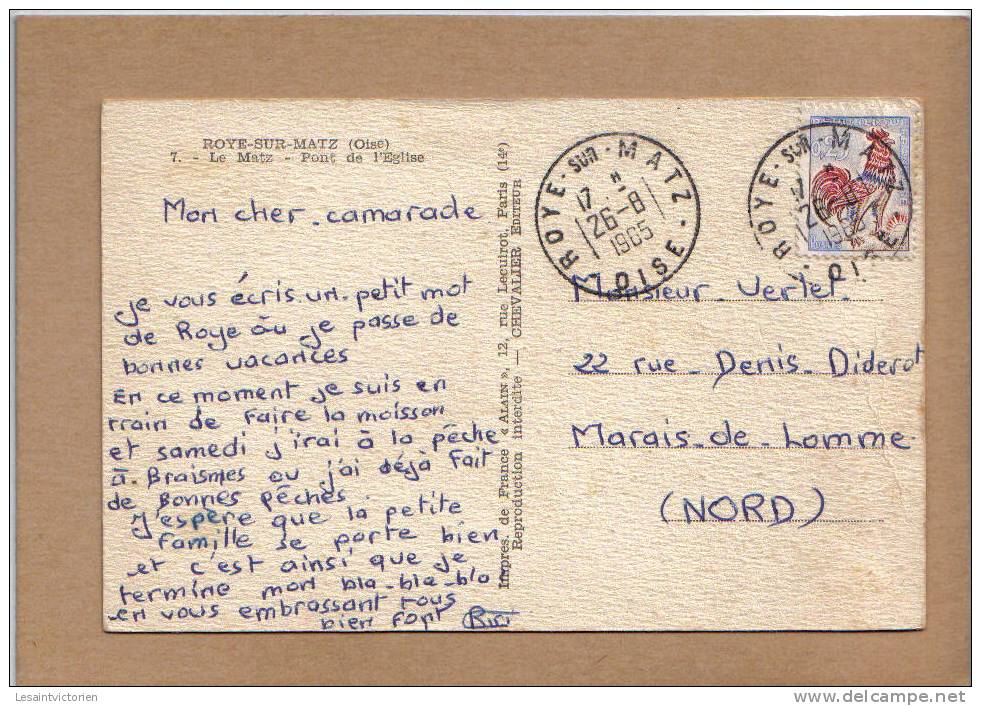 ROYE-SUR-MATZ (Oise)
7. - Le Matz - Pont de l'Eglise
Mon cher camarade
je vous écris un petit mot
de Roye óu je passe de
bonnes vacances
En ce moment je suis en
train de faire la moisson
et samedi j'irai à la pêche
à Braismes ou j'ai déjà fait
de Bonnes pêches.
J'espère que la petite
famille se porte bien
et c'est ainsi que je
termine mon bla-bla-bla
en vous embrassant tous
bien fort
Impres. de France « ALAIN », 12, rue Lecuirot, Paris (14e)
Reproduction interdite — CHEVALIER EDITEUR
ROYE-SUR-MATZ
17
26-8
1965
OISE
ROYE-SUR-MATZ
OISE
Monsieur Verlet
22 rue Denis Diderot
Marais-de-Lomme
(NORD)
Lesaintvictorien
www.delcampe.net